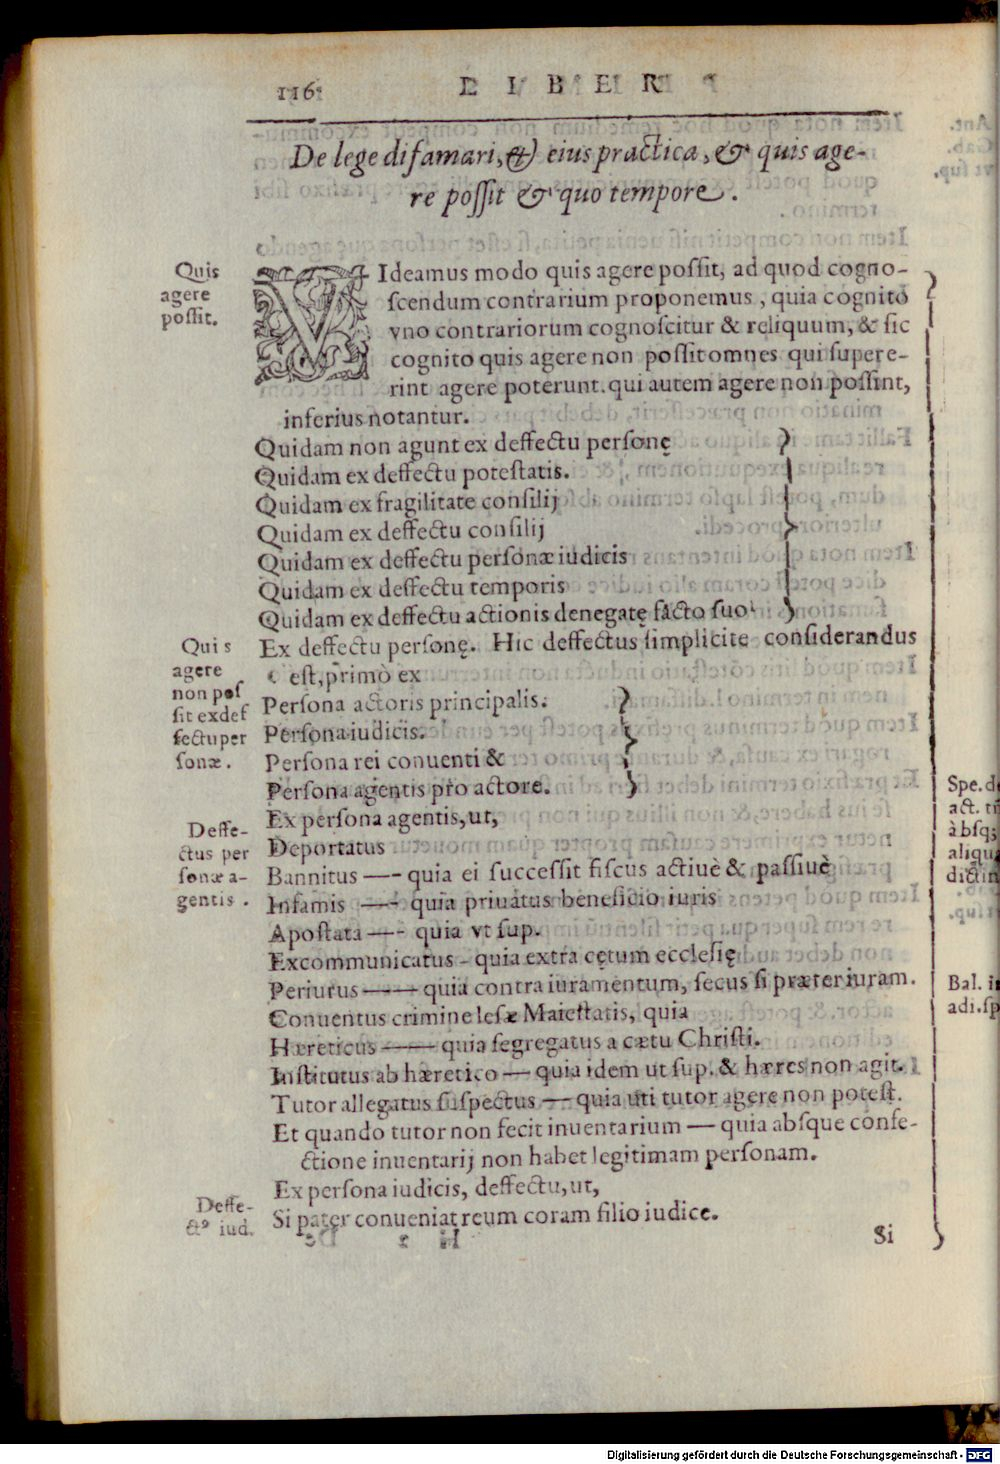 116
LIBER
De lege difamari, & eius practica, & quis age-
re possit & quo tempore.
Quis
agere
possit.
VIdeamus modo quis agere possit, ad quod cogno-
scendum contrarium proponemus, quia cognito
vno contrariorum cognoscitur & reliquum, & sic
cognito quis agere non possit omnes qui supere-
rint agere poterunt. qui autem agere non possint,
inferius notantur.
Quidam non agunt ex deffectu personę
Quidam ex deffectu potestatis.
Quidam ex fragilitate consilij
Quidam ex deffectu consilij
Quidam ex deffectu personæ iudicis
Quidam ex deffectu temporis
Quidam ex deffectu actionis denegatę facto suo
Quis
agere
non pos
sit ex def
fectu per
sonæ.
Ex deffectu personę. Hic deffectus simplicite considerandus
est, primo ex
Persona actoris principalis.
Persona iudicis.
Persona rei conuenti &
Persona agentis pro actore.
Deffe-
ctus per
sonæ a-
gentis.
Ex persona agentis, ut,
Deportatus
Bannitus —- quia ei successit fiscus actiuè & passiuè
Infamis —- quia priuatus beneficio iuris
Apostata —- quia vt sup.
Excommunicatus - quia extra cętum ecclesię
Periurus —— quia contra iuramentum, secus si præter iuram.
Conuentus crimine lesæ Maiestatis, quia
Hæreticus —— quia segregatus a cætu Christi.
Institutus ab hæretico — quia idem ut sup. & hæres non agit.
Tutor allegatus suspectus — quia uti tutor agere non potest.
Et quando tutor non fecit inuentarium — quia absque confe-
ctione inuentarij non habet legitimam personam.
Deffe-
ctꝰ iud.
Ex persona iudicis, deffectu, ut,
Si pater conueniat reum coram filio iudice.
Si
Spe. de
act.
à absq;
aliqua
Bal. i
adi. sp
Digitalisierung gefördert durch die Deutsche Forschungsgemeinschaft - DFG